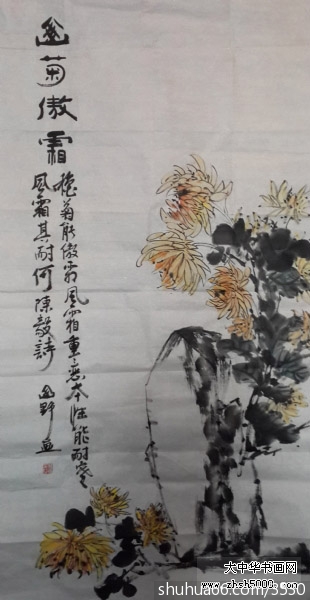 幽菊傲霜
穐菊能傲霜風霜重々惡本性能耐寒
風霜其耐何陳毅詩
幽野画
大中华书画网
www.zhsh5000.com
shuhua66.com/3530